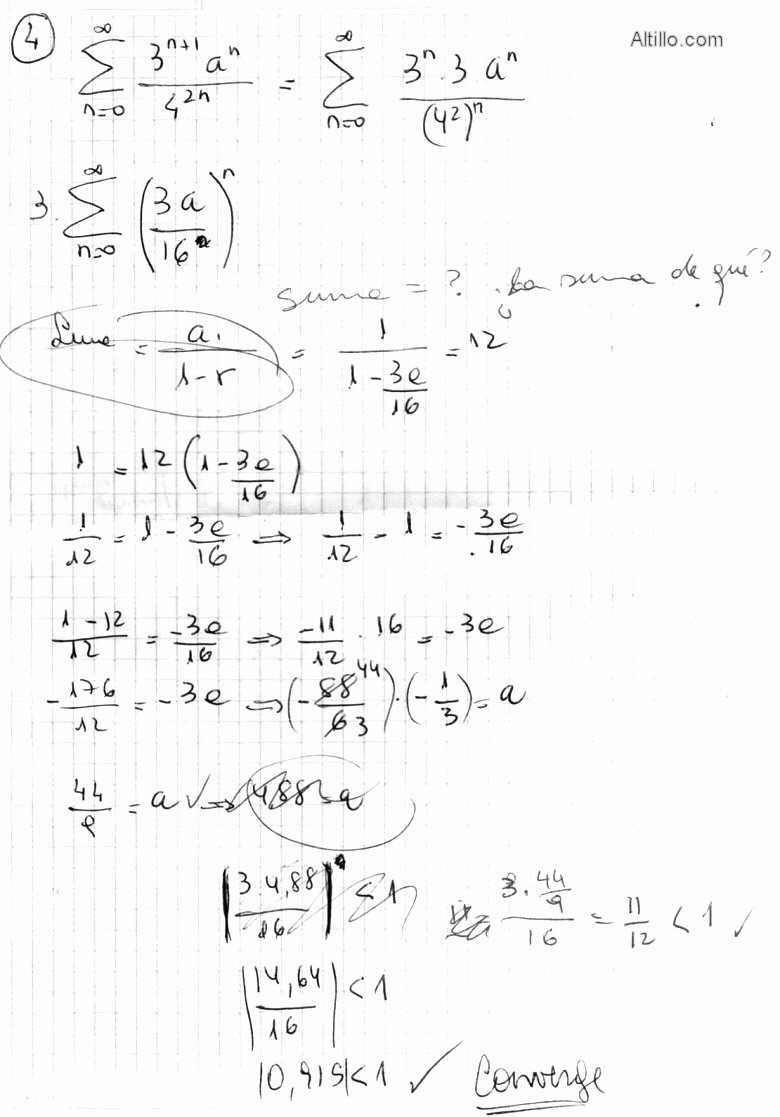 Altillo.com
4
∑_{n=0}^{∞} 3^{n+1} a^n / 4^{2n} = ∑_{n=0}^{∞} 3^n · 3 a^n / (4^2)^n
3 · ∑_{n=0}^{∞} (3a / 16)^n
suma = ? ¿La suma de qué?
Suma = a_1 / (1 - r) = 1 / (1 - 3a/16) = 12
1 = 12 (1 - 3a/16)
1/12 = 1 - 3a/16 ⟹ 1/12 - 1 = -3a/16
(1 - 12)/12 = -3a/16 ⟹ -11/12 · 16 = -3a
-176/12 = -3a ⟹ (-88/6 44/3) · (-1/3) = a
44/9 = a ✓ ⟹ 4,88 = a
|3·4,88 / 16| < 1
(3 · 44/9) / 16 = 11/12 < 1 ✓
|14,64 / 16| < 1
|0,915| < 1 ✓ Converge